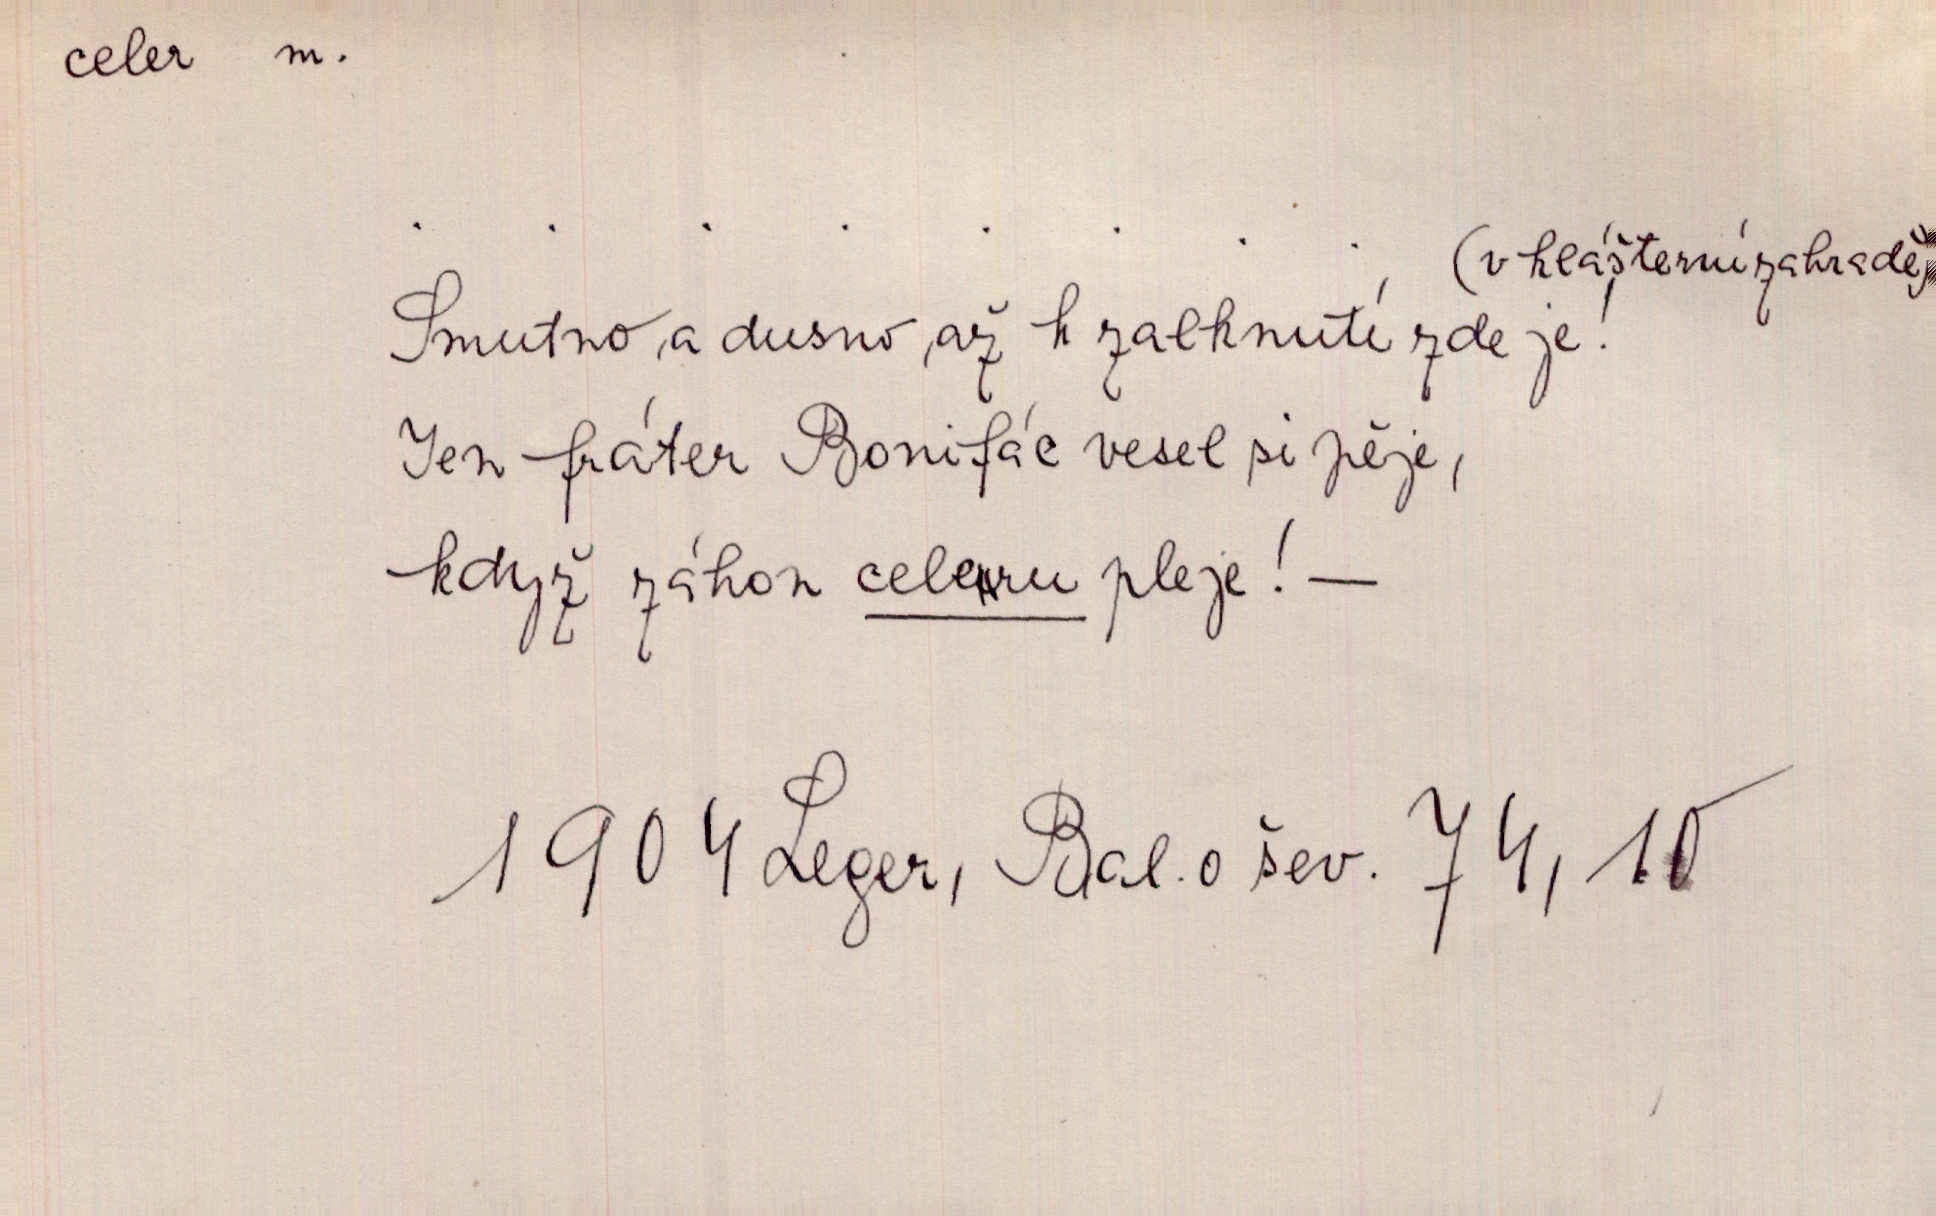 celer m.
. . . . . . . .
(v klášterní zahradě)
Smutno, a dusno, až k zalknutí zde je!
Jen fráter Bonifác vesel si pěje,
když záhon celeru pleje! —
1904 Leger, Bal. o šev. 74, 10